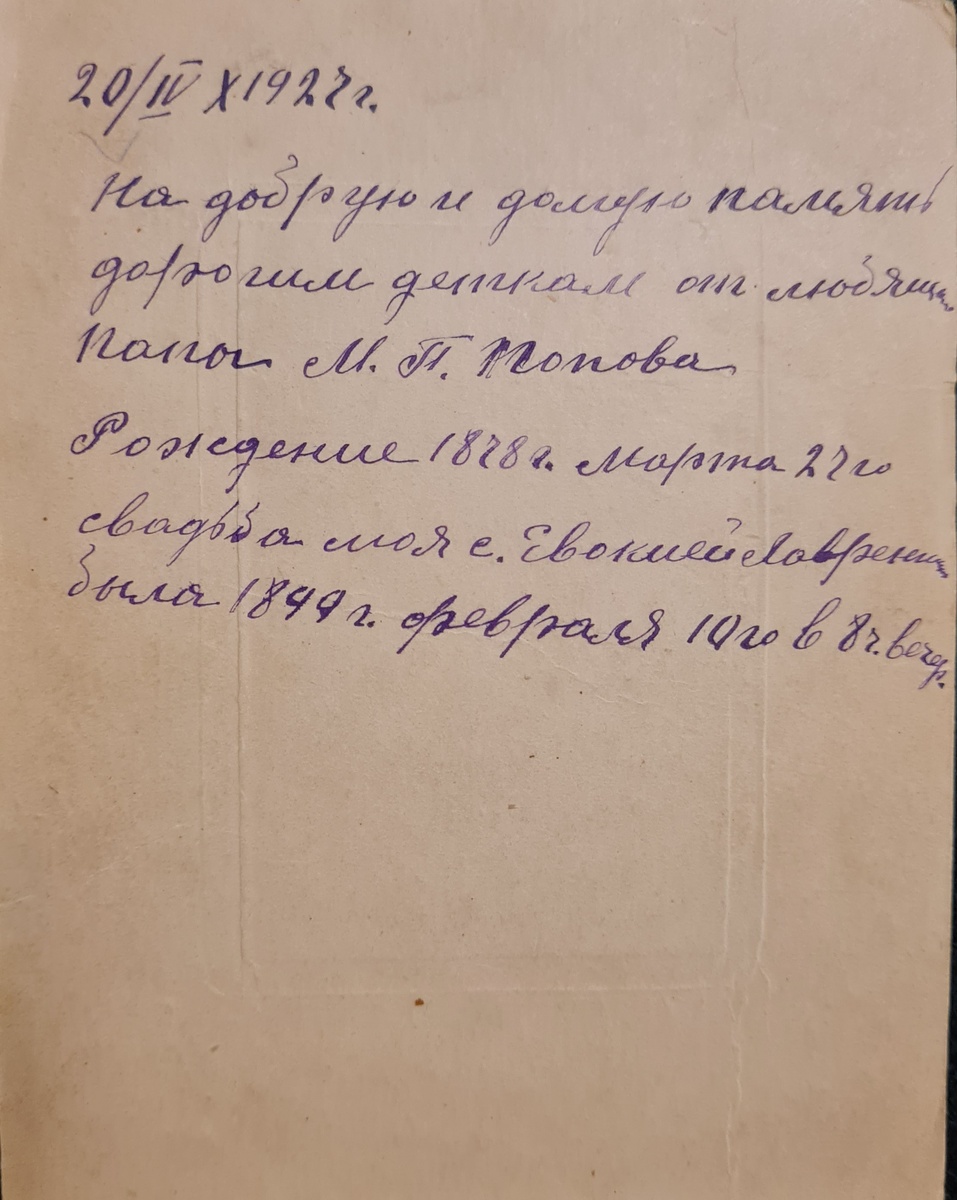 20/IV Х 1927 г.
На добрую и долгую память
дорогим деткам от любящи
Папы М. П. Попова
Рождение 1878 г. марта 27 го
свадьба моя с. Евокией Лаврент
была 1899 г. февраля 10 го в 8 ч. вечер.